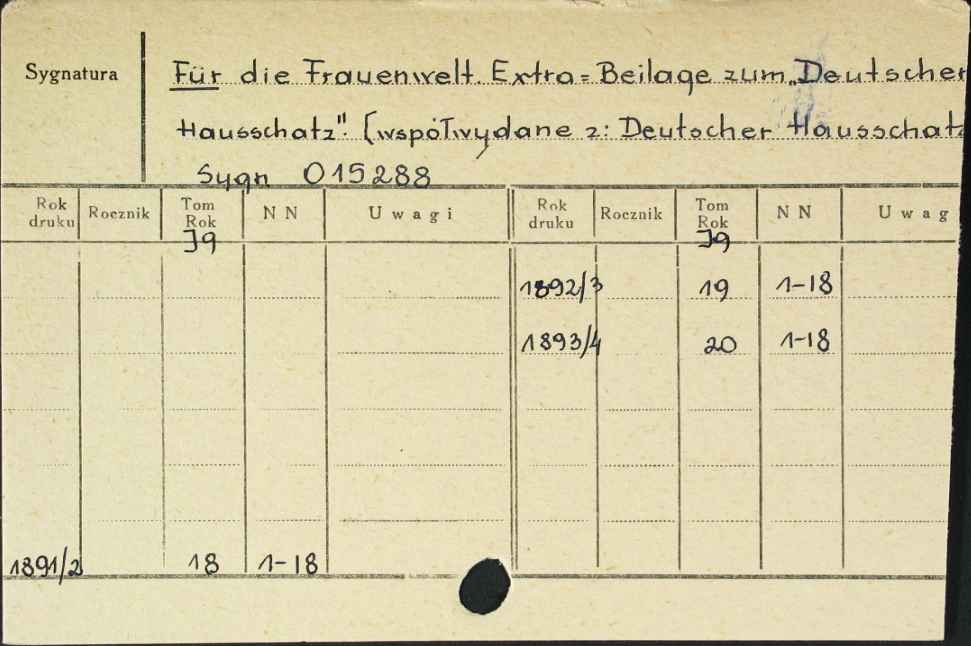 Sygnatura
Für die Frauenwelt Extra=Beilage zum „Deutscher
Hausschatz". [współwydane z: Deutscher Hausschatz
Sygn 015288
Rok druku Rocznik Tom Rok N N Uwagi Rok druku Rocznik Tom Rok N N Uwag
Jg Jg
1892/3 19 1-18
1893/4 20 1-18
1891/2 18 1-18